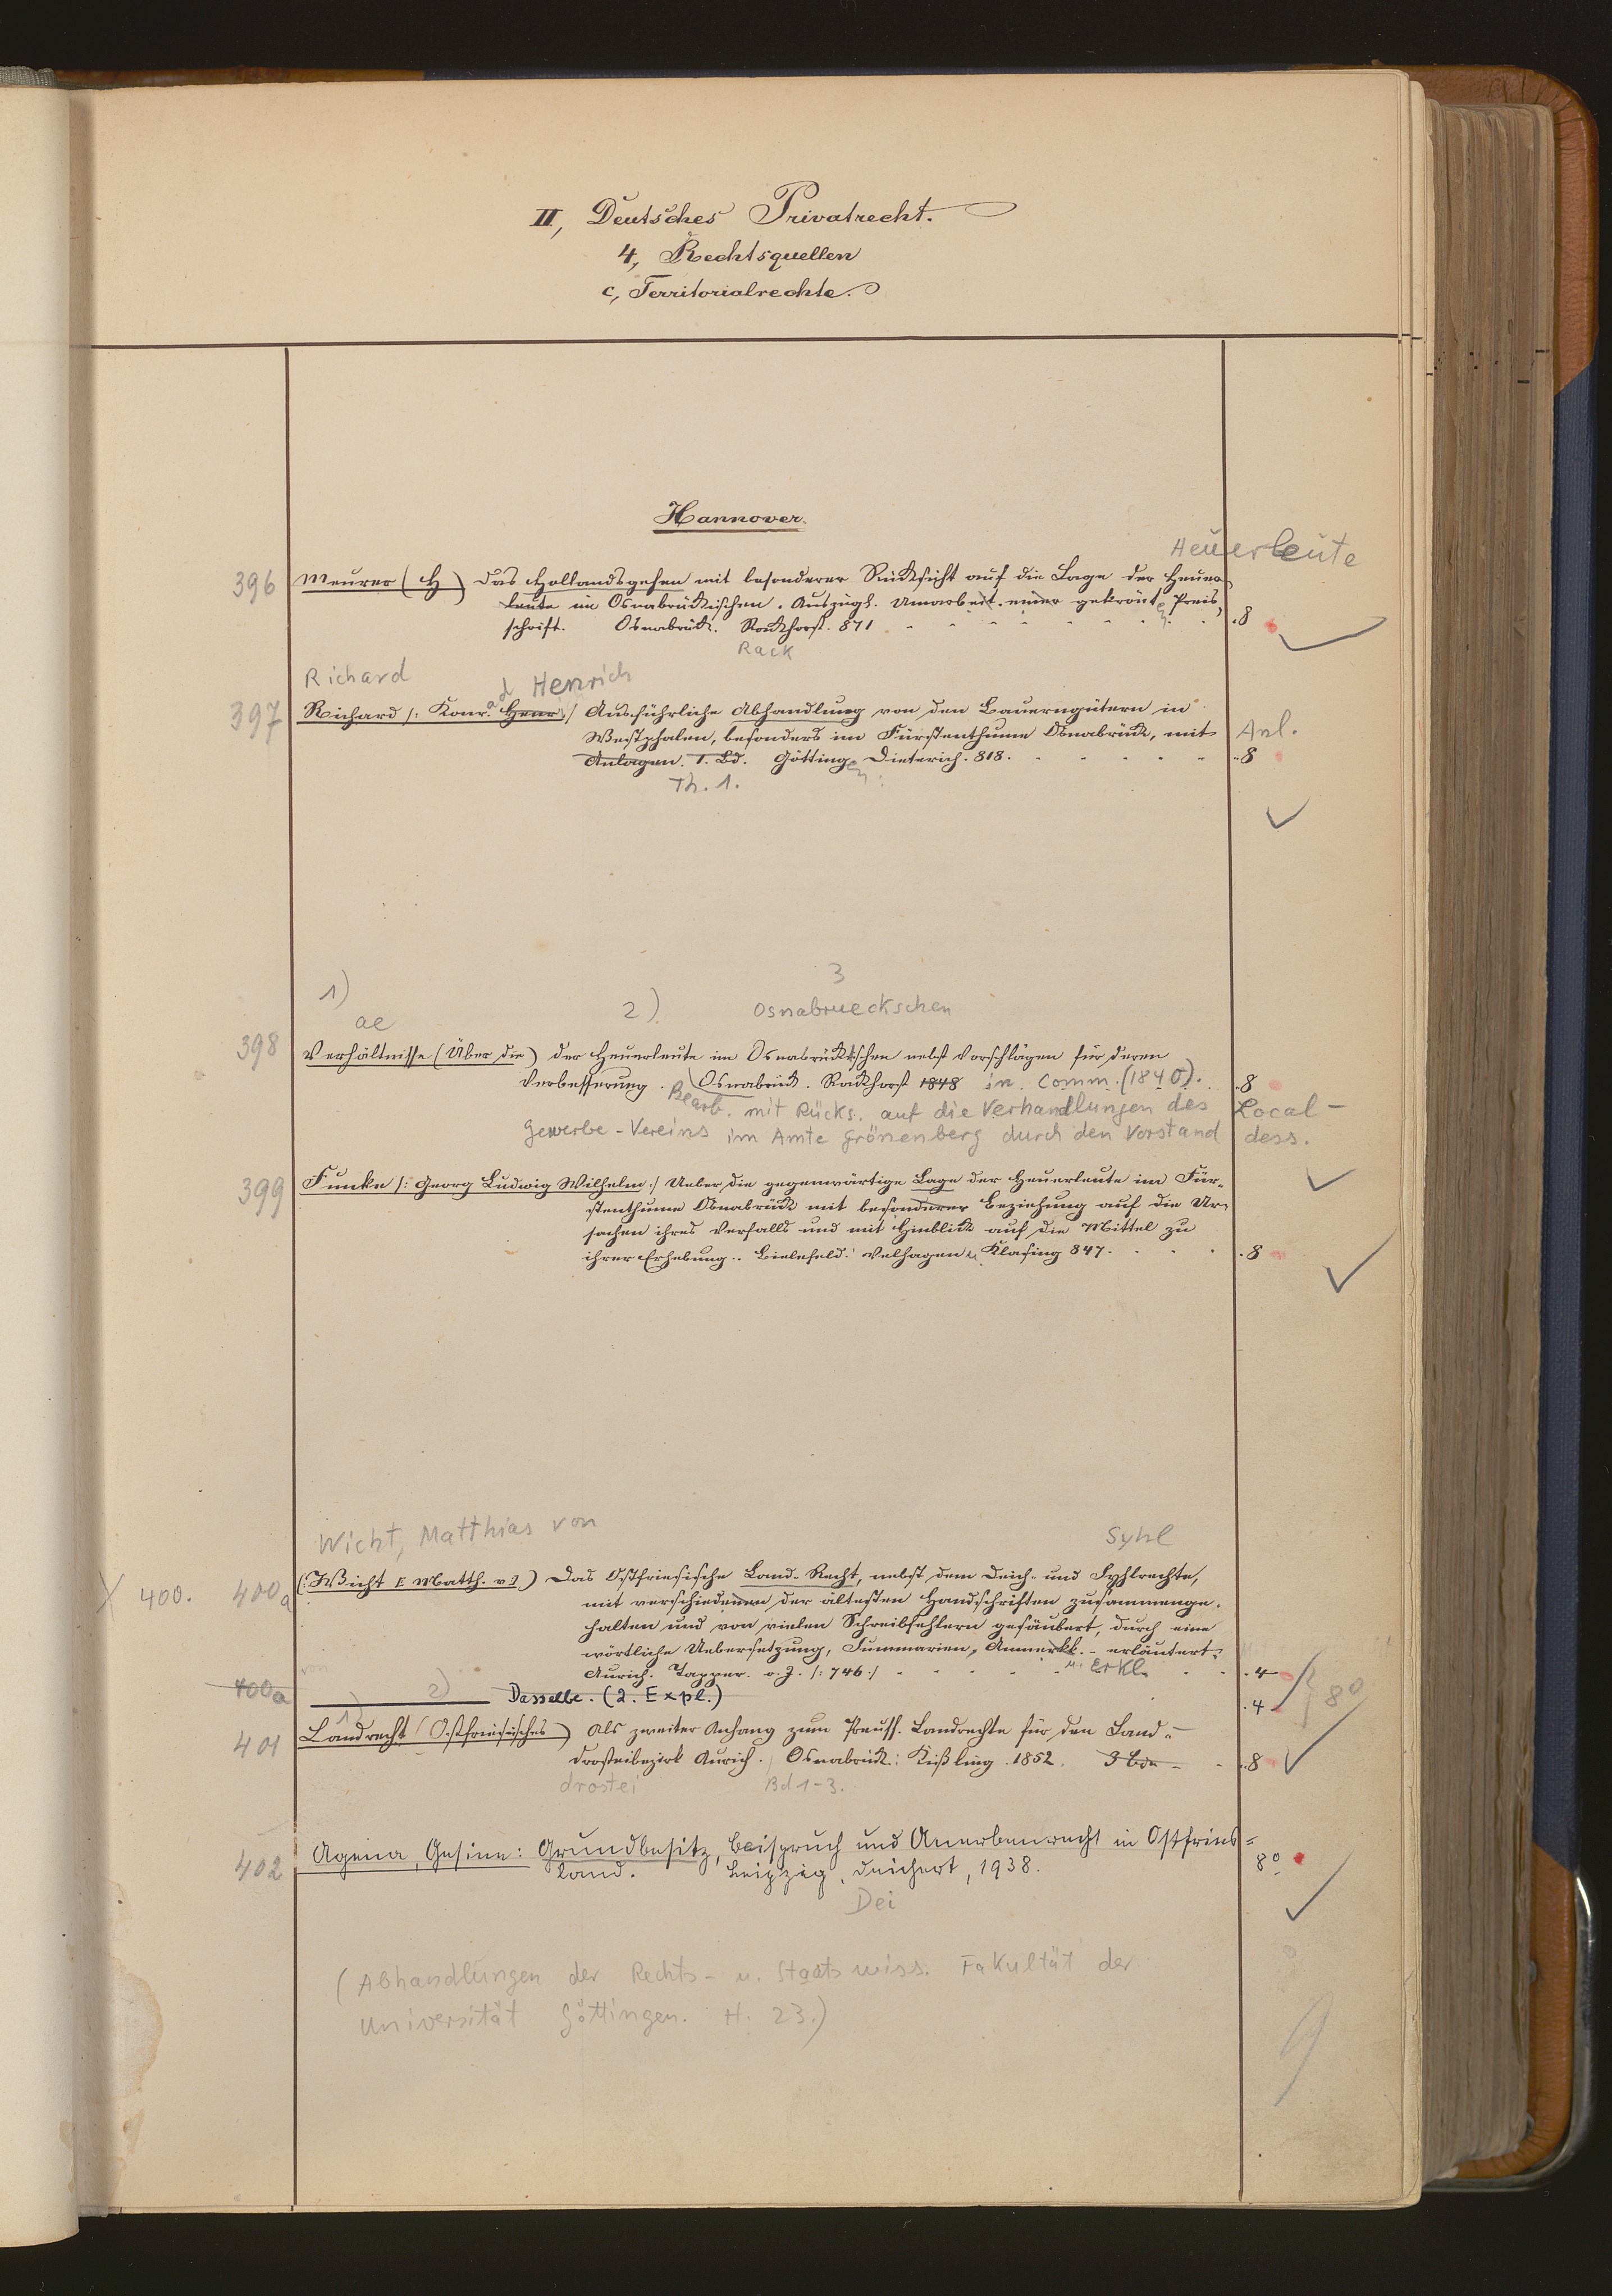 II, Deutsches Privatrecht.
4, Rechtsquellen
c, Territorialrechte.
Hannover.
Heuerleute
396 Meurer (H) Das Hollandsgehen mit besonderer Rücksicht auf die Lage der Heuer
leute im Osnabrückischen. Auszügl. Umarbeit. einer gekrönt en Preis
schrift. Osnabrück. Rackhorst. 871 8
Rack
Richard d Henrich
397 Richard /: Konr. Henr. :/ Ausführliche Abhandlung von den Bauerngütern in
Westphalen, besonders im Fürstenthume Osnabrück, mit Anl.
Anlagen. 1. Bd. Götting en Dieterich. 818. 8
Th. 1.
3
1) 2) osnabrueckschen
ae
398 Verhältnisse (Über die) der Heuerleute im Osnabrückschen nebst Vorschlägen für deren
Verbesserung. Osnabrück. Rackhorst 1848 in Comm. (1840). 8
Bearb. mit Rücks. auf die Verhandlungen des Local-
Gewerbe-Vereins im Amte Grönenberg durch den Vorstand dess.
399 Funke /: Georg Ludwig Wilhelm :/ Ueber die gegenwärtige Lage der Heuerleute im Für-
stenthume Osnabrück mit besonderer Beziehung auf die Ur-
sachen ihres Verfalls und mit Hinblick auf die Mittel zu
ihrer Erhebung. Bielefeld. Velhagen u. Klasing 847. 8
Wicht, Matthias von Syhl
400. 400a (Wicht [Matth. v.]) Das Ostfriesische Land-Recht, nebst dem Deich- und Syhlrechte,
mit verschiedenen der ältesten Handschriften zusammenge-
halten und von vielen Schreibfehlern gesäubert, durch eine
wörtliche Uebersetzung, Summarien, Anmerkk. erläutert.
von Aurich. Tapper. o. J. /: 746 :/ u. Erkl. 4
400a 2) Dasselbe. (2. Expl.) 4 8°
1)
401 Landrecht (Ostfriesisches) Als zweiter Anhang zum Preuss. Landrechte für den Land-
drosteibezirk Aurich. Osnabrück: Kißling. 1852. 3 Bde 8
drostei Bd 1-3.
402 Agena, Gesine: Grundbesitz, Beispruch und Anerbenrecht in Ostfries=
land. Leipzig, Deichert, 1938. 8°
Dei
(Abhandlungen der Rechts- u. Staatswiss. Fakultät der
Universität Göttingen. H. 23.)
9